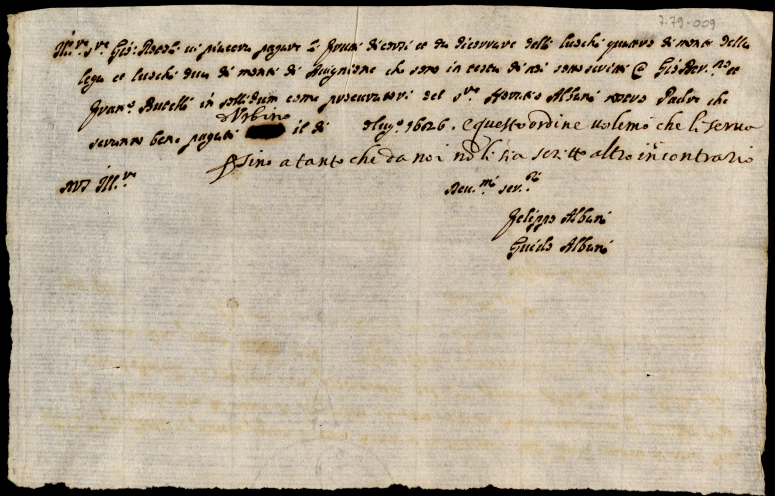 7-79-009
Ill.re s.re Gio: vi piacerà pagare li frutti decorsi et da decorrere delli luochi quattro di monte della
lega et luochi dua di monte di Avignione che sono in testa di noi sottoscritti @ Gio: et
Fran.o Butelli in sollidum come procuratori del s.re Horatio Albani nostro Padre che
d'Urbino
saranno bene pagati il dì 1626. e questo ordine volemo che li serva
sino a tanto che da noi nō li sia scritto altro in contrario
Ill.re
ser.ri
Felippo Albani
Guido Albani